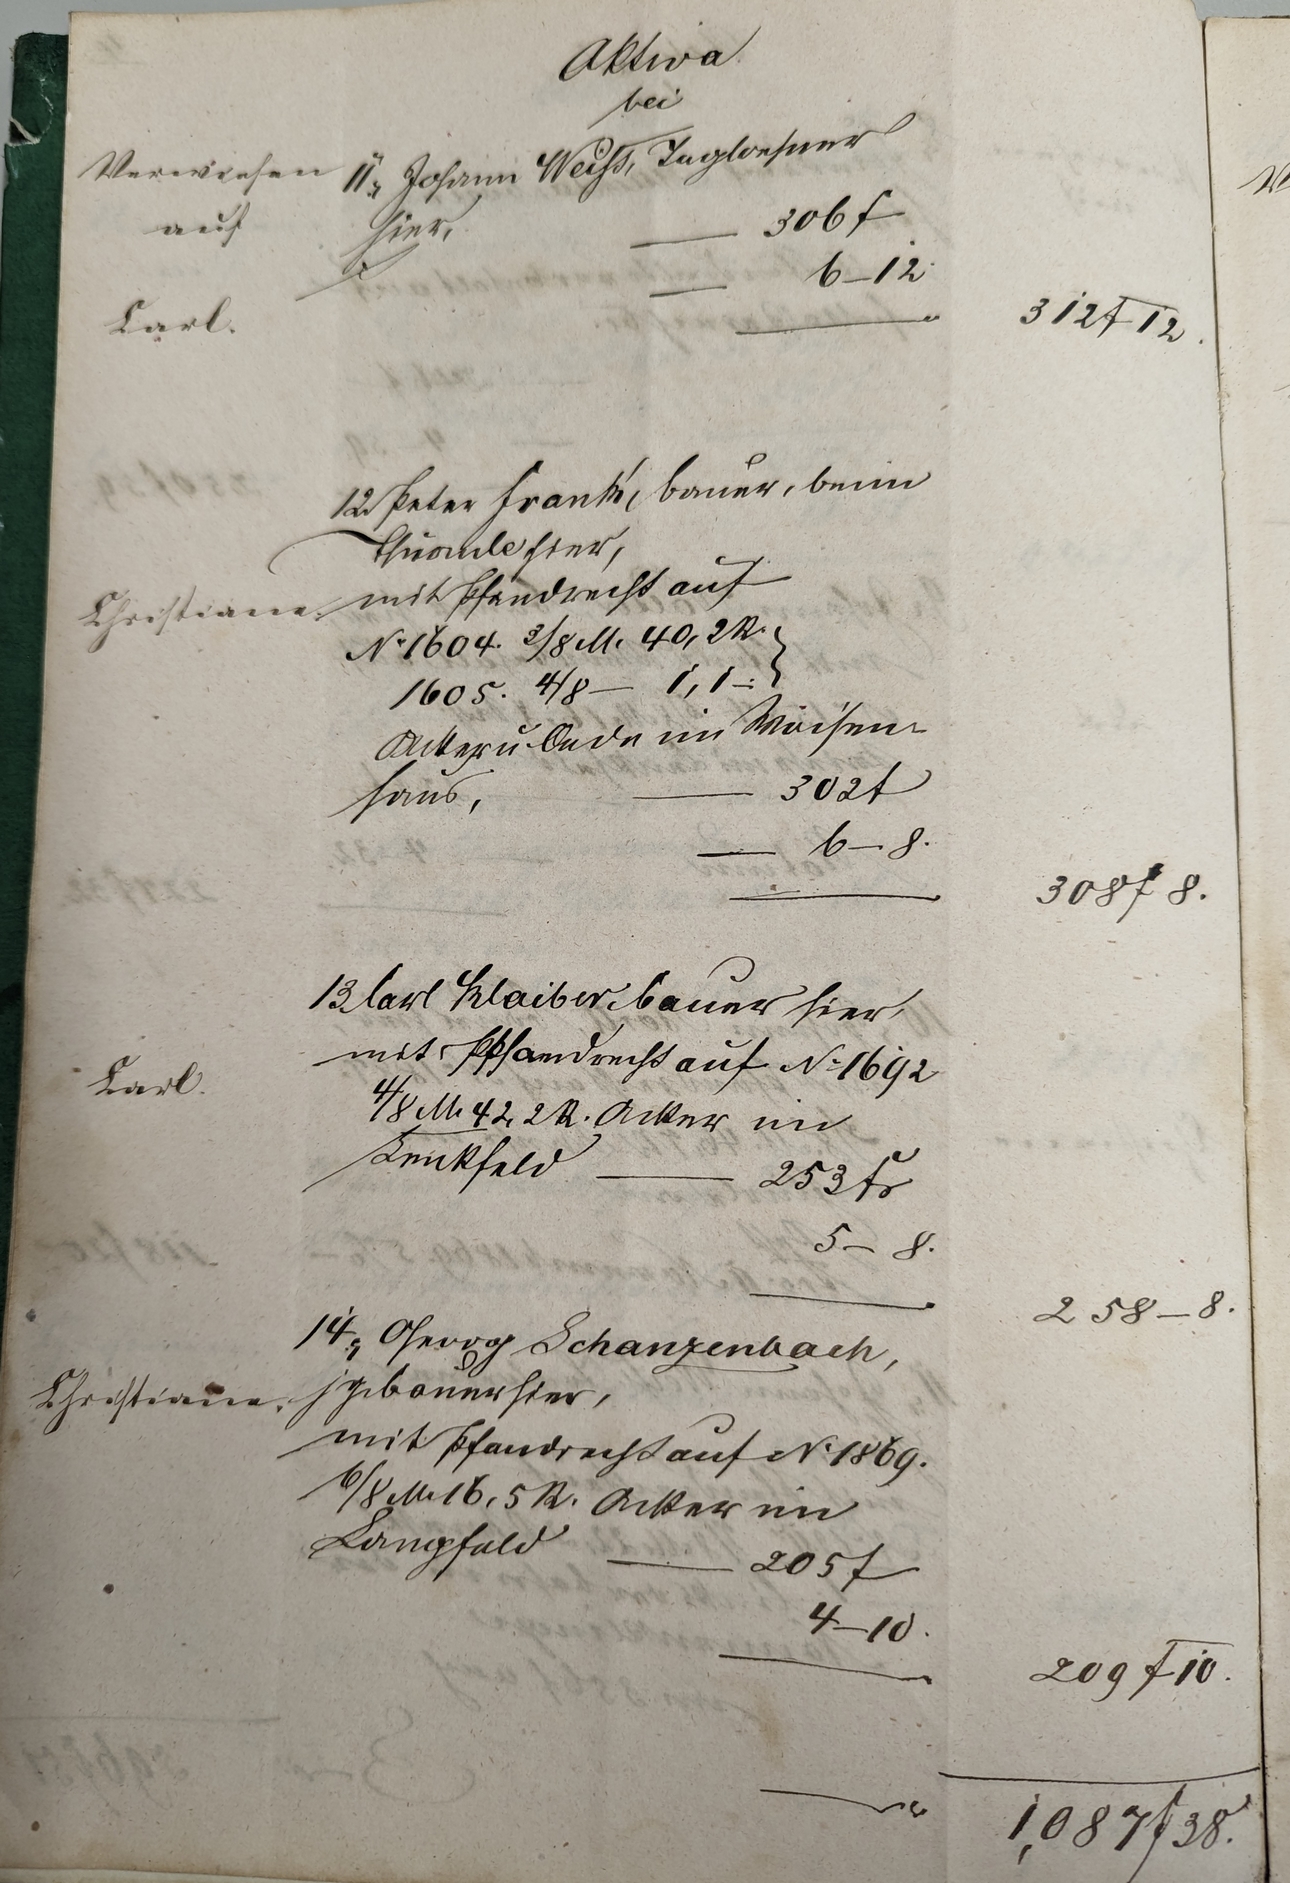 Aktiva
bei
Verwiesen 11., Johann Weiß, Tagloehner
auf hier, — 306 f
— 6–12
Carl. 312 f 12.
12. Peter Frank, Bauer, beim
hier,
Christiane. mit Pfandrecht auf
N. 1604. 3/8 M. 40,2 R. }
1605. 4/8 — 1,1 –: }
Acker u. Oede im Waisen-
haus, — 302 f
— 6 – 8.
308 f 8.
13 Carl Klaiber, Bauer hier,
mit Pfandrecht auf N. 1692
Carl. 4/8 M. 42,2 R. Acker im
Lenkfeld — 253 f
5 – 8.
258 – 8.
14., Georg Schanzenbach,
Christiane. jg. Bauer hier,
mit Pfandrecht auf N. 1869.
6/8 M. 16,5 R. Acker im
Langfeld — 205 f
4 – 10.
209 f 10.
1,087 f 38.